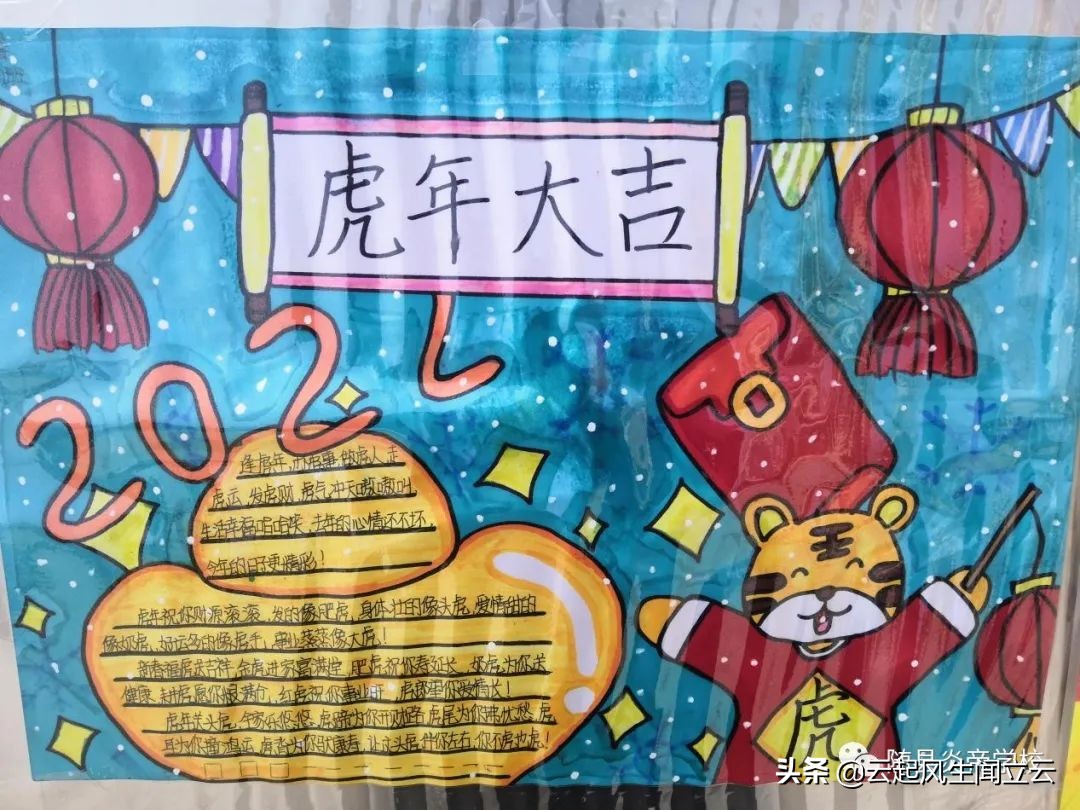 虎年大吉
2022
逢虎年,办虎事,做虎人,走
虎运,发虎财,虎气冲天嗷嗷叫,
生活幸福哈哈笑,去年的心情还不坏,
今年的日子更精彩!
虎年祝你财源滚滚,发的像肥虎,身体壮的像头虎,爱情甜的
像奶虎,好运多的像虎毛,事业蒸蒸像大虎!
新春福虎送吉祥,金虎进家富满堂,肥虎祝你寿延长,奶虎为你送
健康,虎愿你粮满仓,红虎祝你事业旺,虎你爱情长!
虎年羊头虎,全家乐悠悠,虎蹄为你开财路,虎尾为你拂忧愁,虎
耳为你撞鸿运,虎背为你驮康寿,让这头虎伴你左右,你不虎也虎!
王
虎
随县炎帝学校
头条 @云起风生闻立云